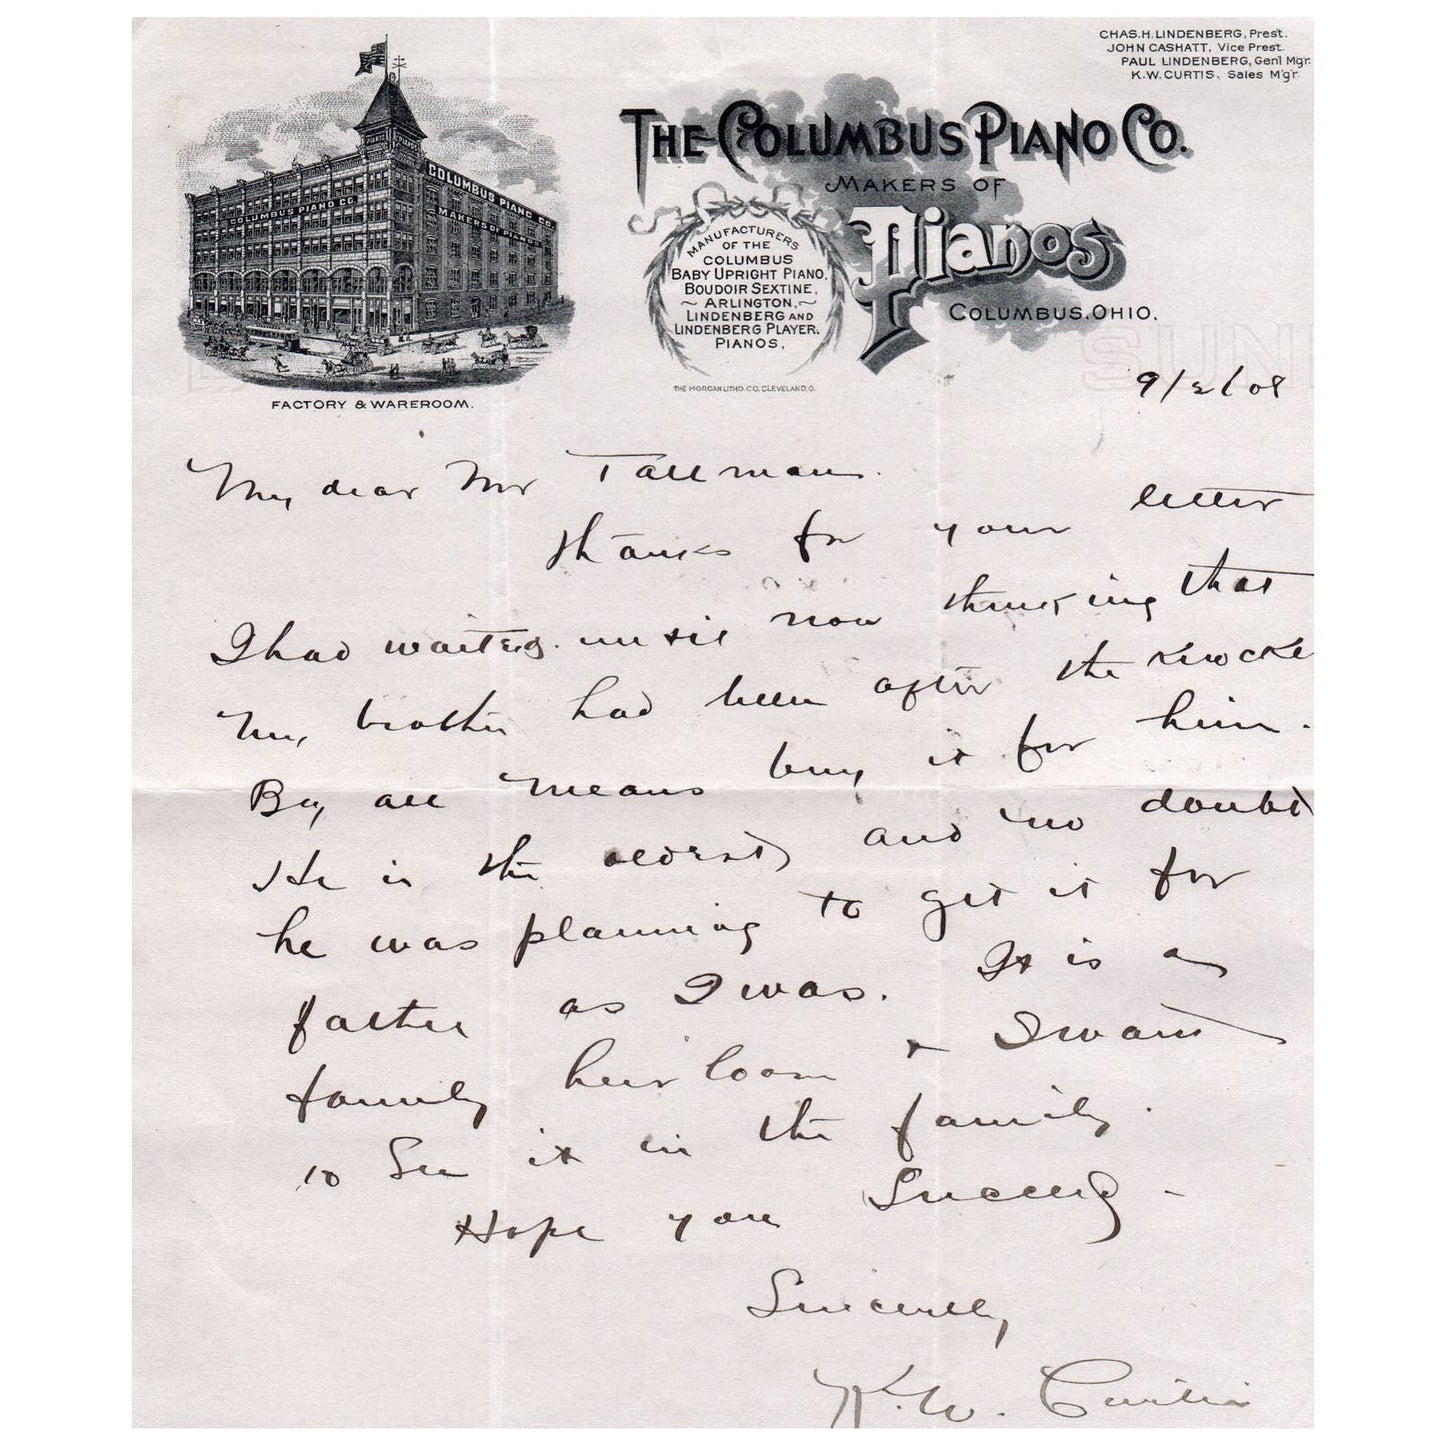 CHAS. H. LINDENBERG, Prest.
JOHN CASHATT, Vice Prest.
PAUL LINDENBERG, Gen'l Mgr.
K. W. CURTIS, Sales M'g'r.
THE COLUMBUS PIANO CO.
MAKERS OF
Pianos
COLUMBUS, OHIO.
MANUFACTURERS
OF THE
COLUMBUS
BABY UPRIGHT PIANO,
BOUDOIR SEXTINE,
~ ARLINGTON, ~
LINDENBERG AND
LINDENBERG PLAYER,
PIANOS,
THE MORGAN LITHO. CO. CLEVELAND, O.
COLUMBUS PIANO CO.
COLUMBUS PIANO CO.
MAKERS OF PIANOS
FACTORY & WAREROOM.
9/2/08
My dear Mr Tallman.
thanks for your letter
I had waited until now thinking that
my brother had been after the
By all means buy it for him.
He is the oldest and no doubt
he was planning to get it for
father as I was. It is a
family heirloom + I want
to see it in the family.
Hope you succeed -
Sincerely
K. W. Curtis